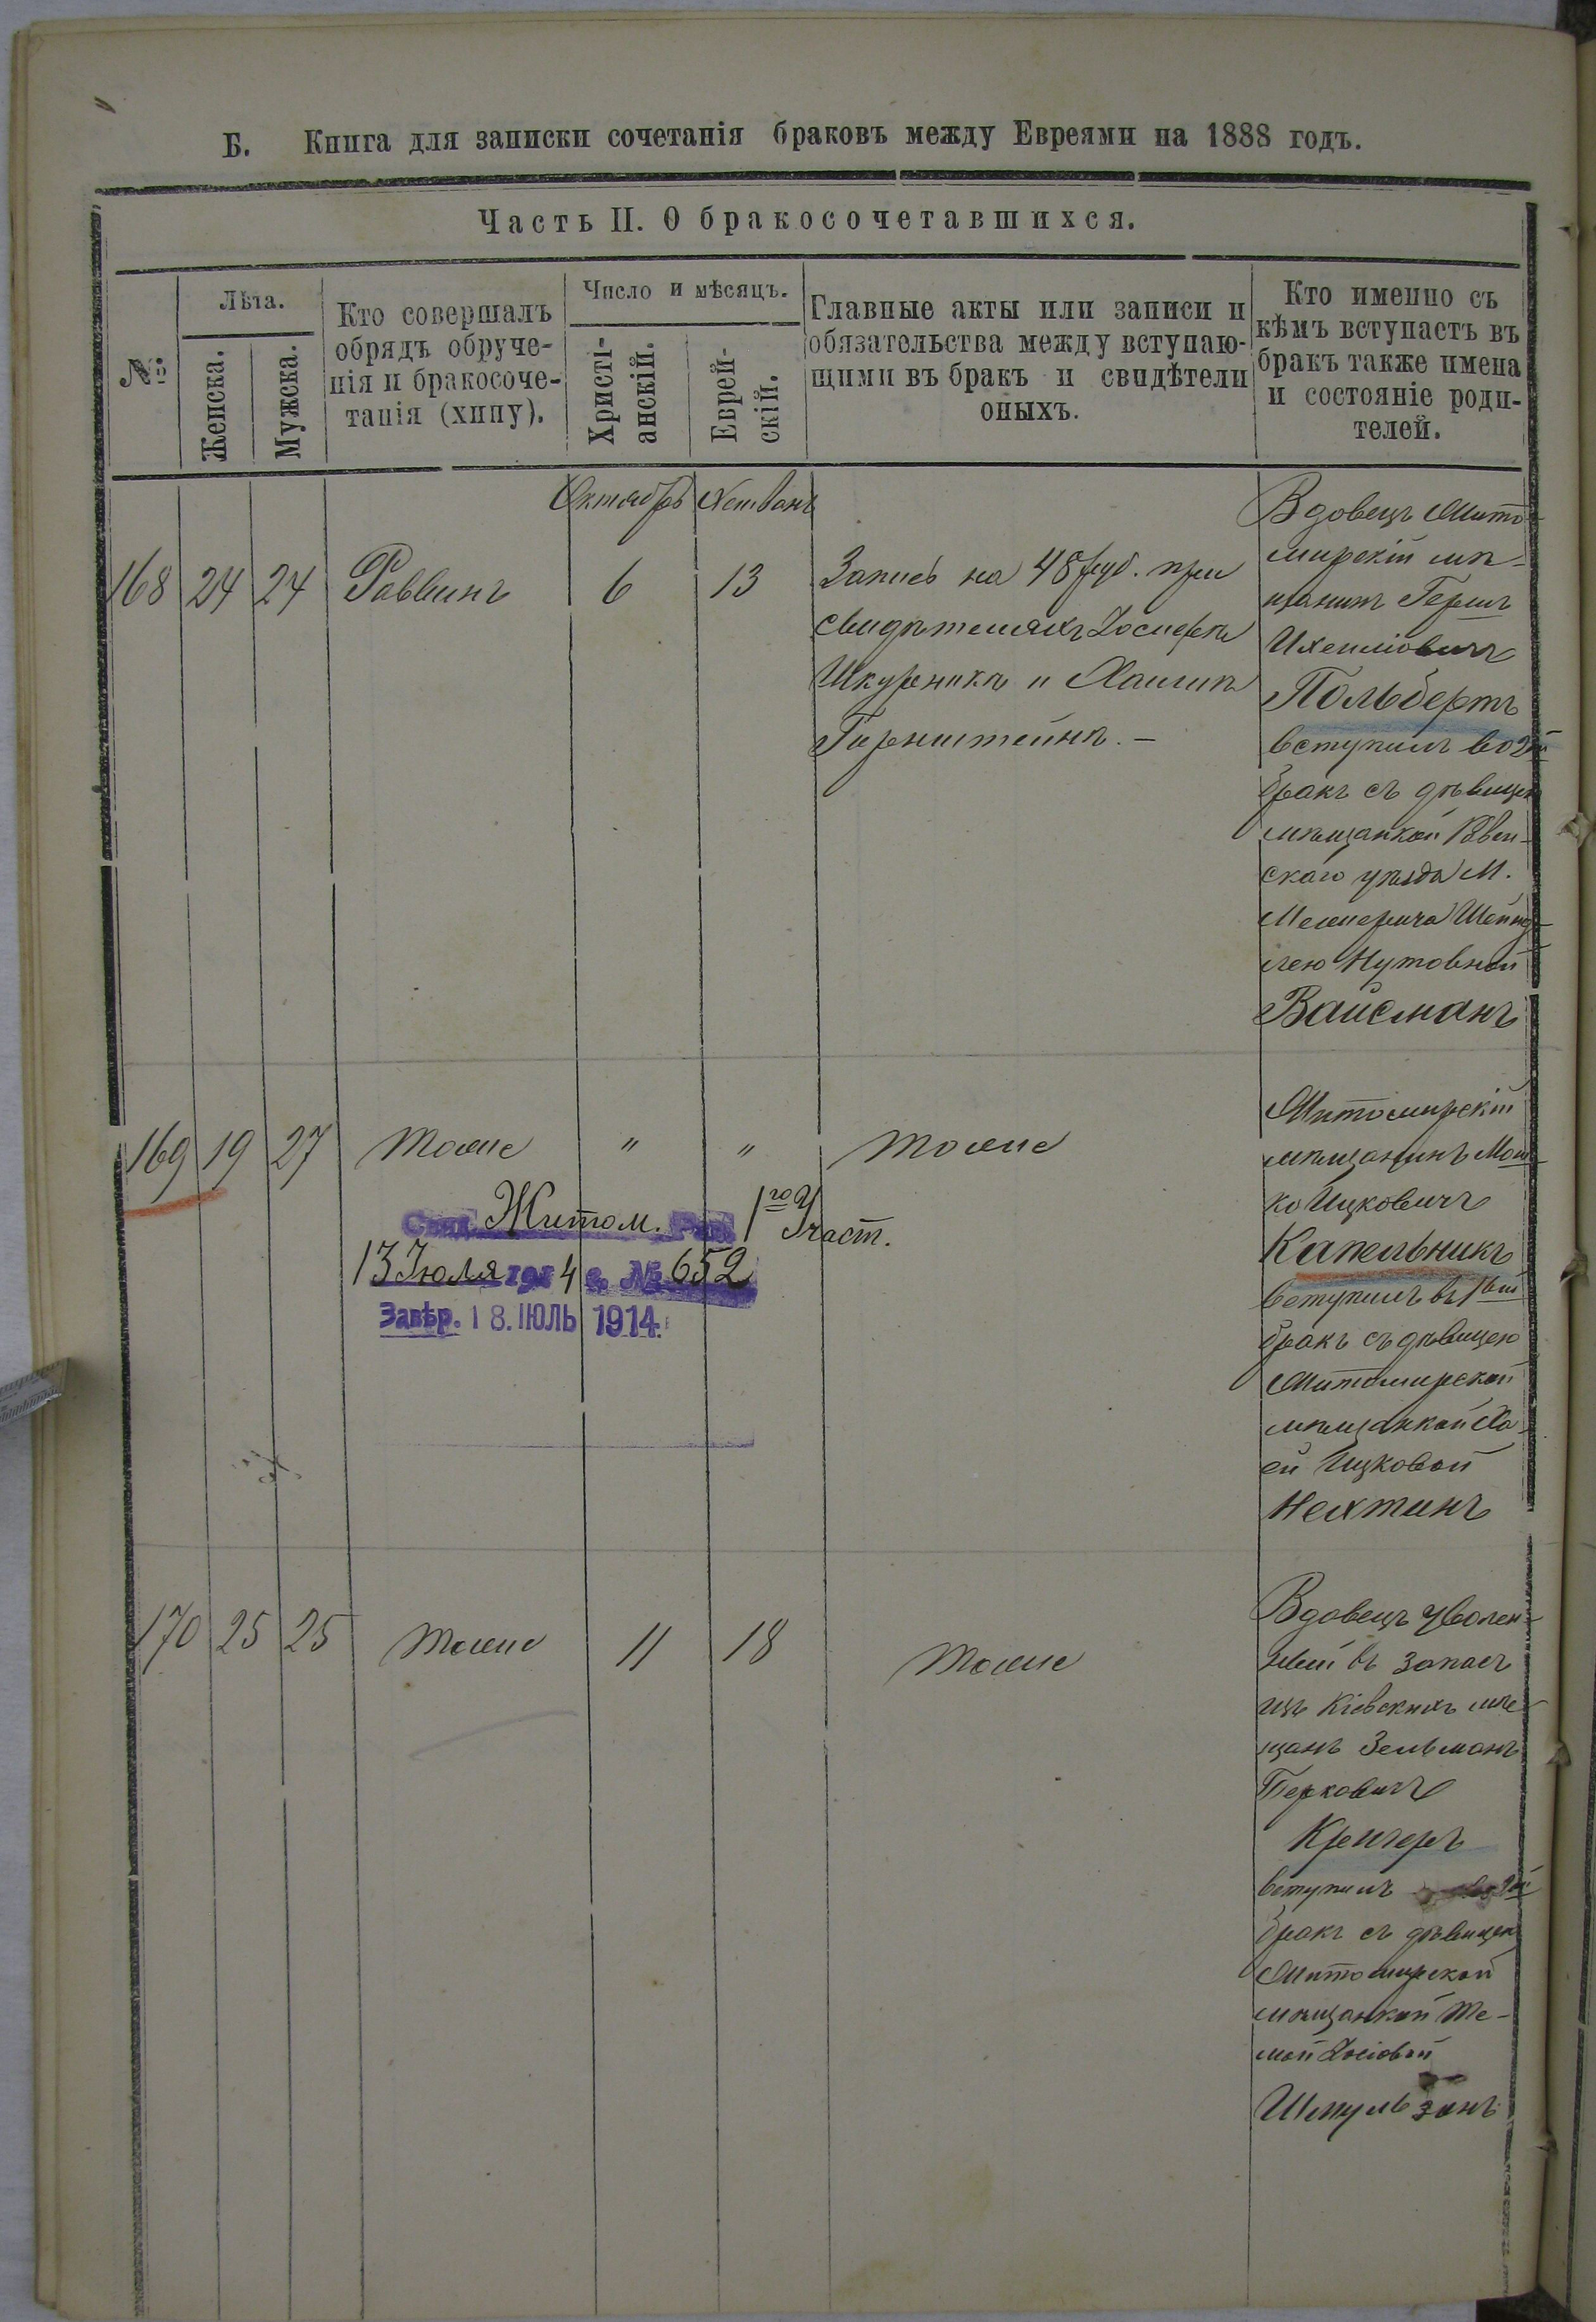 Б. Книга для записки сочетанія браковъ между Евреями на 1888 годъ.
Часть II. О бракосочетавшихся.
№
Лѣта.
Женска.
Мужска.
Кто совершалъ
обрядъ обруче-
нія и бракосоче-
танія (хипу).
Число и мѣсяцъ.
Христі-
анскій.
Еврей-
скій.
Главные акты или записи и
обязательства между вступаю-
щими въ бракъ и свидѣтели
оныхъ.
Кто именно съ
кѣмъ вступаетъ въ
бракъ также имена
и состояніе роди-
телей.
Октябрь Хешванъ
168 24 24 Раввинъ 6 13
Запись на 48 руб. при
свидѣтеляхъ Іосифѣ
Шкурникѣ и Хаимѣ
Гиренштейнѣ. —
Вдовецъ Жито-
мирскій мѣ-
щанинъ Гершъ
Ихеиліовичъ
Гольбертъ
вступилъ во 2й
бракъ съ дѣвицею
мѣщанкой Ровен-
скаго уѣзда М.
Межирича Шейнд-
лею Нутовной
Вайсманъ
169 19 27 тоже " " тоже
Свид. Житом. Рав. 1го Участ.
13 Іюля 1914 г. № 652
Завѣр. 18. ІЮЛЬ 1914
Житомирскій
мѣщанинъ Мош-
ко Ицковичъ
Капельникъ
вступилъ въ 1вый
бракъ съ дѣвицею
Житомирской
мѣщанкой Ха-
ей Ицковой
Нехтинъ
170 25 25 тоже 11 18 тоже
Вдовецъ уволен-
ный въ запасъ
изъ Кіевскихъ мѣ-
щанъ Зельманъ
Берковичъ
Кренчеръ
вступилъ во 2й
бракъ съ дѣвицею
Житомирской
мѣщанкой Те-
мой Іосіовой
Шпульзанъ